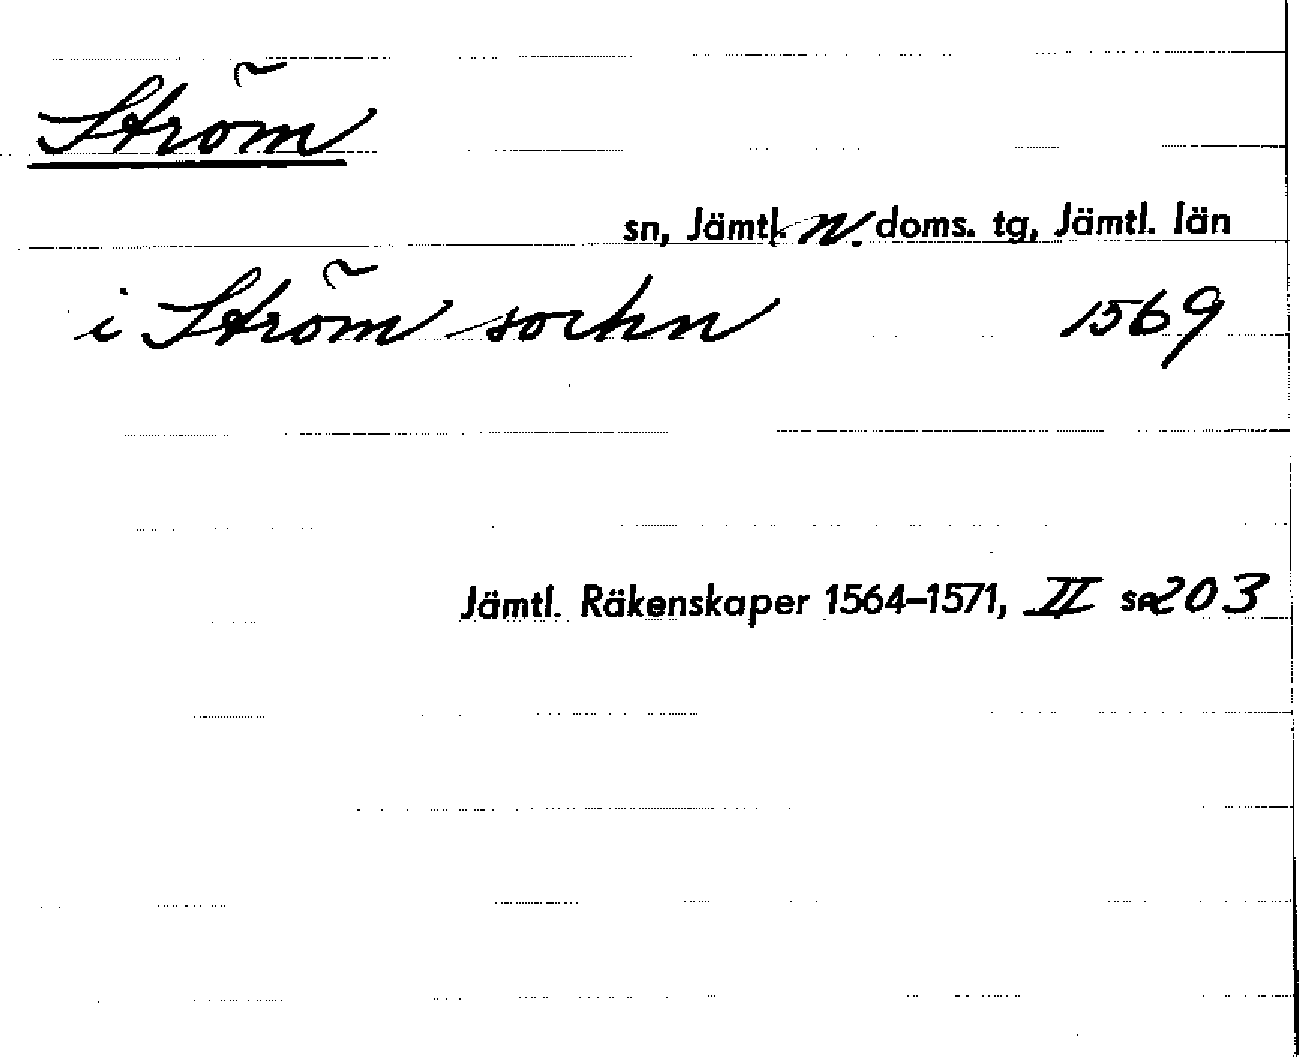 Ström
sn, Jämtl. n. doms. tg, Jämtl. län
i Ström sochn 1569
Jämtl. Räkenskaper 1564–1571, II s. 203